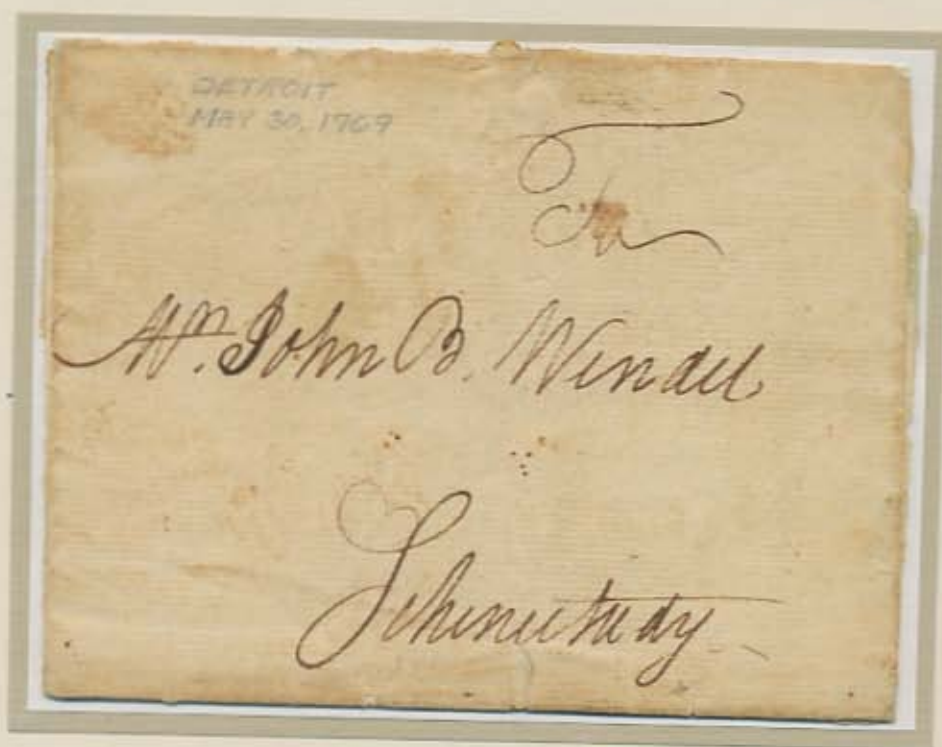 DETROIT
MAY 30, 1769
To
Mr. John B. Wendell
Schenectady